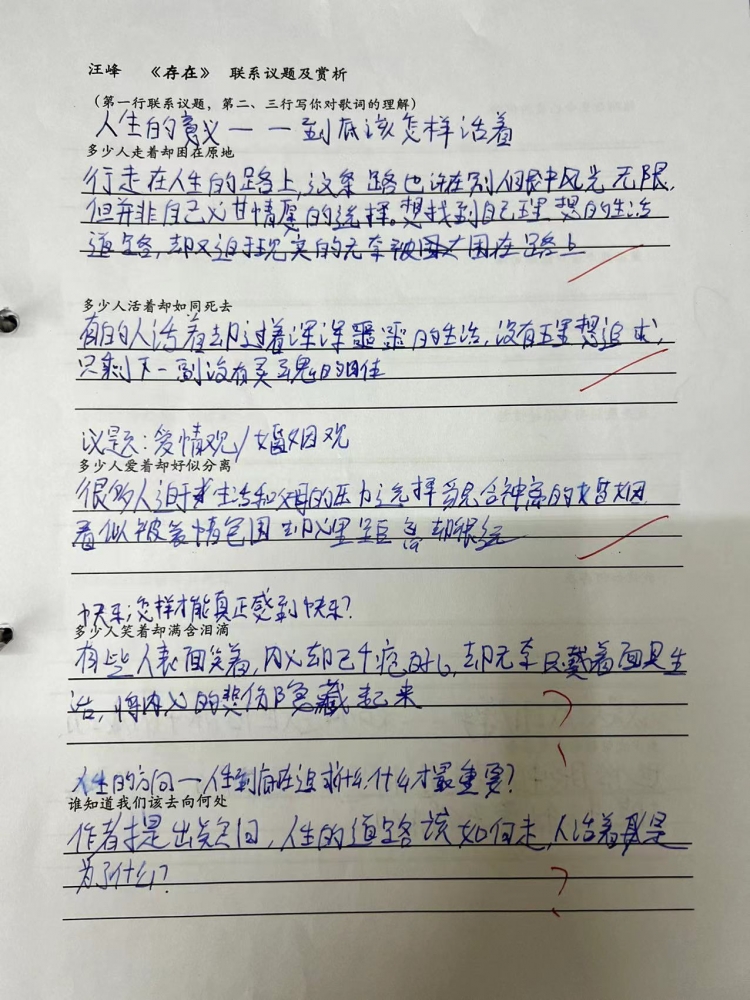 汪峰 《存在》 联系议题及赏析
(第一行联系议题，第二、三行写你对歌词的理解)
人生的意义——到底该怎样活着
多少人走着却困在原地
行走在人生的路上，这条路也许在别人眼中风光无限，
但并非自己心甘情愿的选择。想找到自己理想的生活
道路，却又迫于现实的无奈被困在路上
多少人活着却如同死去
有的人活着却过着浑浑噩噩的生活，没有理想追求，
只剩下一副没有灵魂的
议题：爱情观/婚姻观
多少人爱着却好似分离
很多人迫于生活和父母的压力选择貌合神离的婚姻
看似被爱情包围却心里距离却很远
快乐：怎样才能真正感到快乐？
多少人笑着却满含泪滴
有些人表面笑着，内心却已千疮百孔，却无奈只戴着面具生
活，将内心的悲伤隐藏起来
人生的方向—人生到底在追求什么，什么才最重要？
谁知道我们该去向何处
作者提出疑问，人生的道路该如何走，人活着是
为了什么？